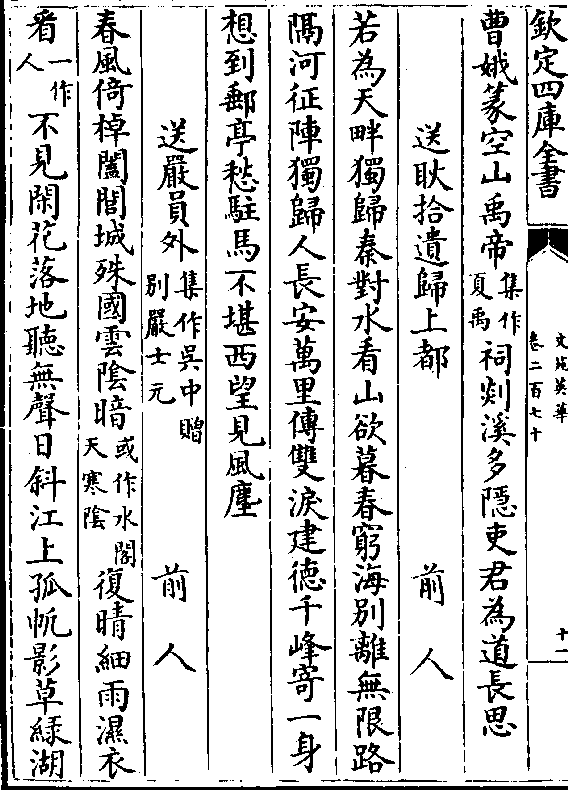 欽定四庫全書
文苑英華
卷二百七十
十一
曹娥篆空山禹帝集作夏禹祠剡溪多隱吏君為道長思
送耿拾遺歸上都 前人
若為天畔獨歸秦對水看山欲暮春窮海別離無限路
隔河征陣獨歸人長安萬里傳雙淚建德千峰寄一身
想到郵亭愁駐馬不堪西望見風塵
送嚴員外集作吳中贈別嚴士元 前人
春風倚棹闔閭城殊國雲陰暗或作水閣天寒陰復晴細雨濕衣
看一作人不見閑花落地聽無聲日斜江上孤帆影草綠湖